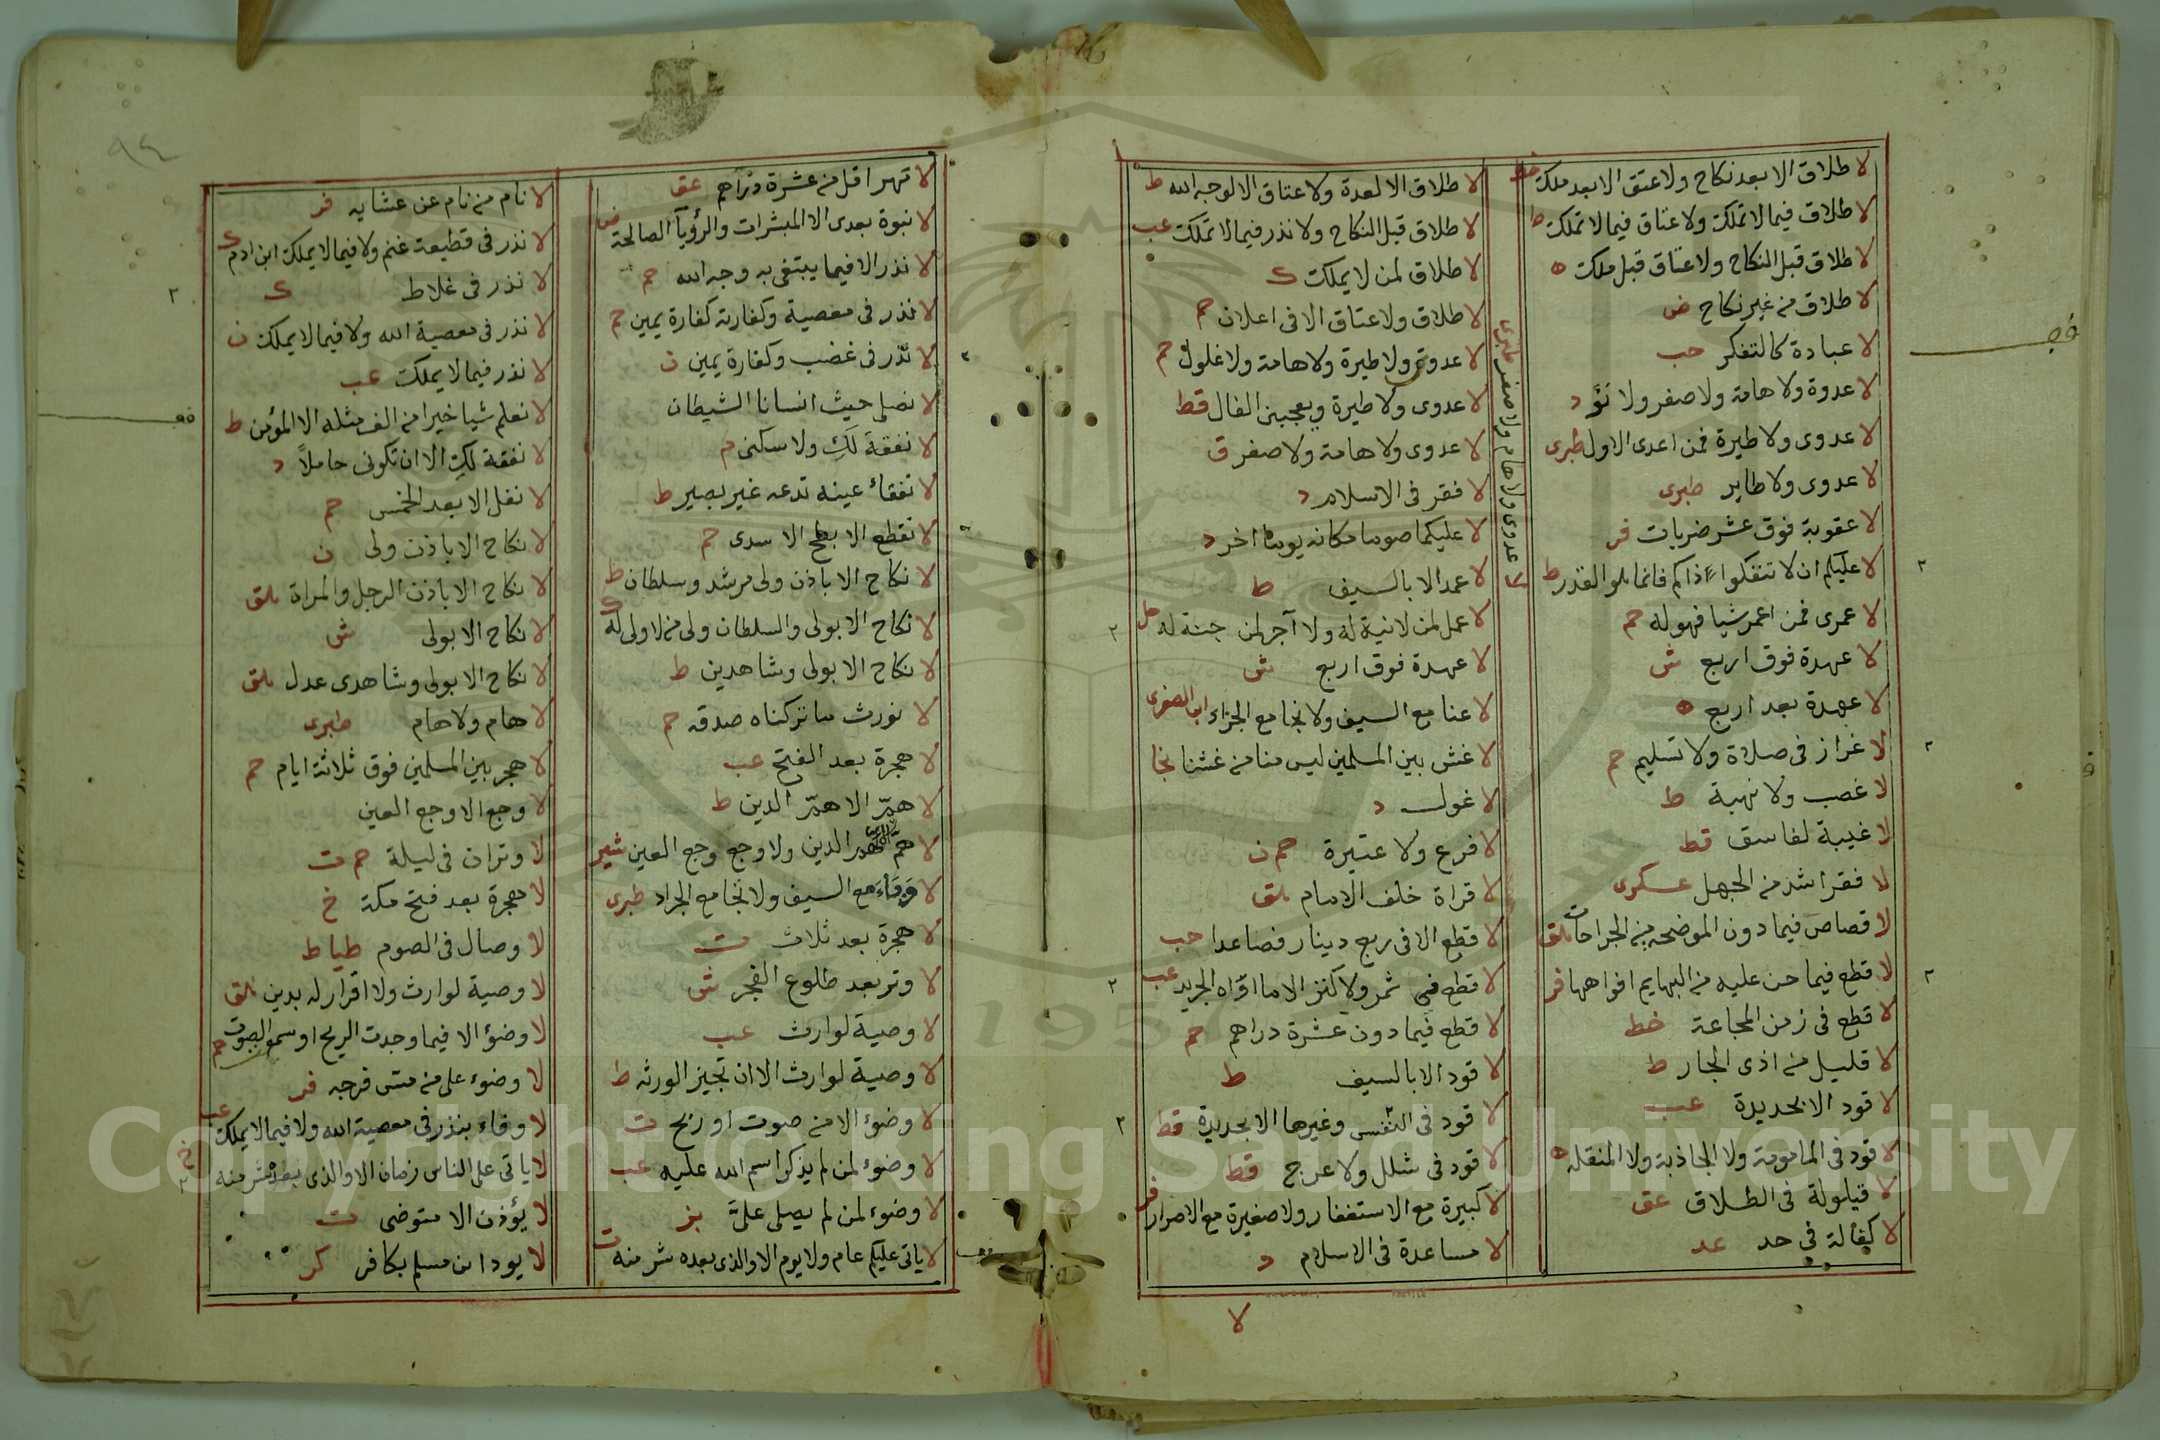 لا طلاق الا بعد نكاح ولا عتق الا بعد ملك خط
لا طلاق فيما لا تملك ولا عتاق فيما لا تملك ط
لا طلاق قبل النكاح ولا عتاق قبل ملك ه
لا طلاق من غير نكاح ض
لا عبادة كالتفكر حب
لا عدوة ولا هامة ولا صفر ولا نَوْءَ د
لا عدوى ولا طيرة فمن اعدى الاول طبرى
لا عدوى ولا طاير طبرى
لا عقوبة فوق عشر ضربات فر
لا عليكم ان لا تفعلوا ذاكم فانما هو القدر ط
لا عمرى فمن اعمر شيا فهو له حم
لا عهدة فوق اربع ش
لا عهدة بعد اربع ه
لا غراز فى صلاة ولا تسليم حم
لا غصب ولا نهبة ط
لا غيبة لفاسق قط
لا فقر اشد من الجهل عسكرى
لا قصاص فيما دون الموضحة من الجراحات هق
لا قطع فيما حن عليه من البهايم افواهها فر
لا قطع فى زمن المجاعة خط
لا قليل من اذى الجار ط
لا قود الا بحديدة عب
لا قود فى المامومة ولا الجاذبة ولا المنقلة ه
لا قيلولة فى الطلاق عق
لا كفالة فى حد عد
لا عدوى ولا هام ولا صفر طبرى
لا طلاق الا لعدة ولا عتاق الا لوجه الله ط
لا طلاق قبل النكاح ولا نذر فيما لا تملك عب
لا طلاق لمن لا يملك ك
لا طلاق ولا عتاق الا فى اعلان حم
لا عدوى ولا طيرة ولا هامة ولا غلول حم
لا عدوى ولا طيرة ويعجبنى الفال قط
لا عدوى ولا هامة ولا صفر ق
لا فقر فى الاسلام د
لا عليكما صوما مكانه يوما اخر د
لا عمد الا بالسيف ط
لا عمل لمن لا نية له ولا آجر لمن حسنة له حل
لا عهدة فوق اربع ش
لا عنا مع السيف ولا نجا مع الجراد
لا غش بين المسلمين ليس منا من غشنا نجا
لا غول د
لا فرع ولا عتيرة حم ن
لا قراة خلف الامام هق
لا قطع الا فى ربع دينار فصاعدا حب
لا قطع فى ثمر ولا كثر الا ما اوّاه الجرين عب
لا قطع فيما دون عشرة دراهم حم
لا قود الا بالسيف ط
لا قود فى النفس وغيرها الا بحديدة قط
لا قود فى شلل ولا عرج قط
لا كبيرة مع الاستغفار ولا صغيرة مع الاصرار فر
لا مساعدة فى الاسلام د
لا
لا مهر اقل من عشرة دراهم عق
لا نبوة بعدى الا المبشرات والرؤيآ الصالحة ض
لا نذر الا فيما يبتغى به وجه الله حم
لا نذر فى معصية وكفارته كفارة يمين حم
لا نذر فى غضب وكفارة يمين ن
لا نصلى حيث انسانا الشيطان
لا نفقة لَكِ ولا سكنى م
لا تفقاء عينه تدعه غير بصير ط
لا تقطع الابطح الا سدى حم
لا نكاح الا باذن ولى مرشد وسلطان ط
لا نكاح الا بولى والسلطان ولى من لا ولى له ك
لا نكاح الا بولى وشاهدين ط
لا نورث ما تركناه صدقه حم
لا هجرة بعد الفتح عب
لا همّ الا همّ الدين ط
لا همّ الدين ولا وجع وجع العين شير
لا وَقَاءَ مع السيف ولا نجا مع الجراد طبرى
لا هجرة بعد ثلاث ت
لا وتر بعد طلوع الفجر ش
لا وصية لوارث عب
لا وصية لوارث الا ان تجيز الورثه ط
لا وضوء الا من صوت او ريح ت
لا وضوء لمن لم يذكر اسم الله عليه عب
لا وضوء لمن لم يصلى علىّ بز
لا ياتى عليكم عام ولا يوم الا والذى بعده شر منه ت
٩٤
لا نام من نام عن عشايه فر
لا نذر فى قطيعة غنم ولا فيما لا يملك ابن ادم ك
لا نذر فى غلاط ك
لا نذر فى معصية الله ولا فيما لا يملك ن
لا نذر فيما لا يملك عب
لا نعلم شيا خيرا من الف مثله الا المؤمن ط
لا نفقة لكِ الا ان تكونى حاملاً د
لا نفل الا بعد الخمس حم
لا نكاح الا باذن ولى ن
لا نكاح الا باذن الرجل والمراة هق
لا نكاح الا بولى ش
لا نكاح الا بولى وشاهدى عدل هق
لا هام ولا هام طبرى
لا هجر بين المسلمين فوق ثلاثة ايام حم
لا وجع الا وجع العين
لا وتران فى ليلة حم ت
لا هجرة بعد فتح مكة خ
لا وصال فى الصوم طيا ط
لا وصية لوارث ولا اقرار له بدين هق
لا وضؤ الا فيما وجدت الريح او سمع الصوت حم
لا وضوء على من مسّ فرجه فر
لا وفاء بنذر فى معصية الله ولا فيما لا يملك عب
لا ياتى على الناس زمان الا والذى بعده شر منه خ
لا يؤذن الا متوضى ت
لا يودا من مسلم بكافر كر